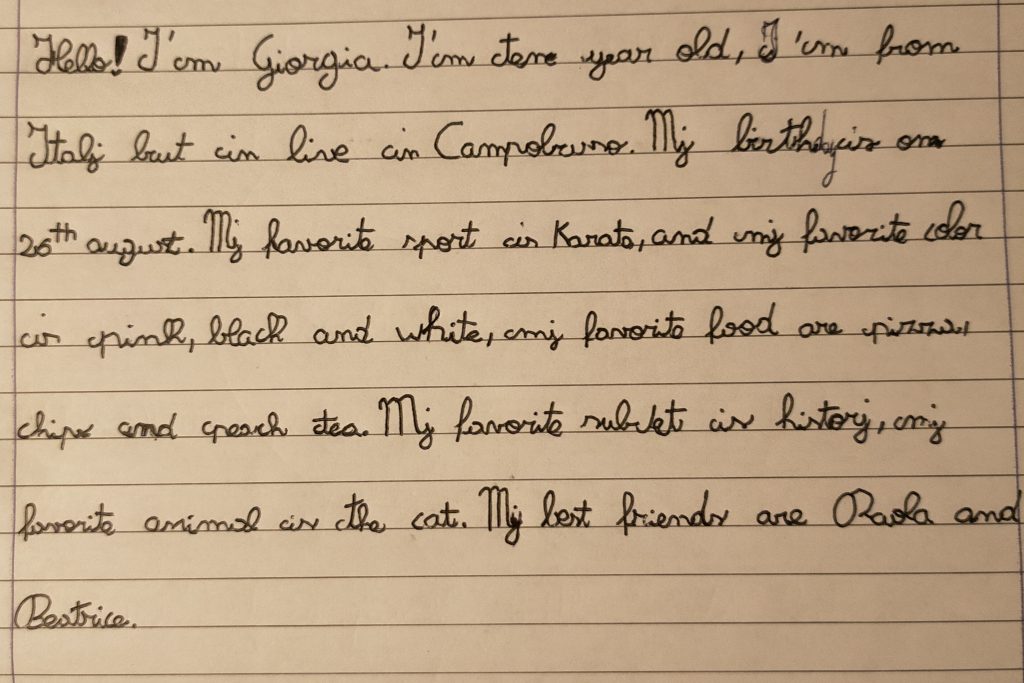 Hello! I'm Giorgia. I'm tene year old, I'm from
Italy but in live in Campobasso. My birthday is on
26th august. My favorite sport is Karate, and my favorite color
is pink, black and white, my favorite food are pizza,
chips and peach tea. My favorite subjet is history, my
favorite animal is the cat. My best friends are Paola and
Beatrice.